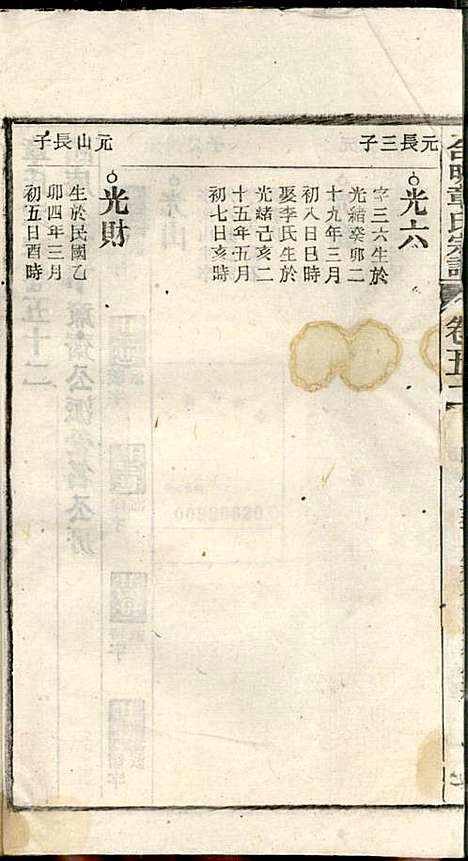 章氏宗譜
卷五十二
元長三子
光六
字三六生於
光緒癸卯二
十九年三月
初八日巳時
娶李氏生於
光緒己亥二
十五年五月
初七日亥時
元山長子
光財
生於民國乙
卯四年三月
初五日酉時